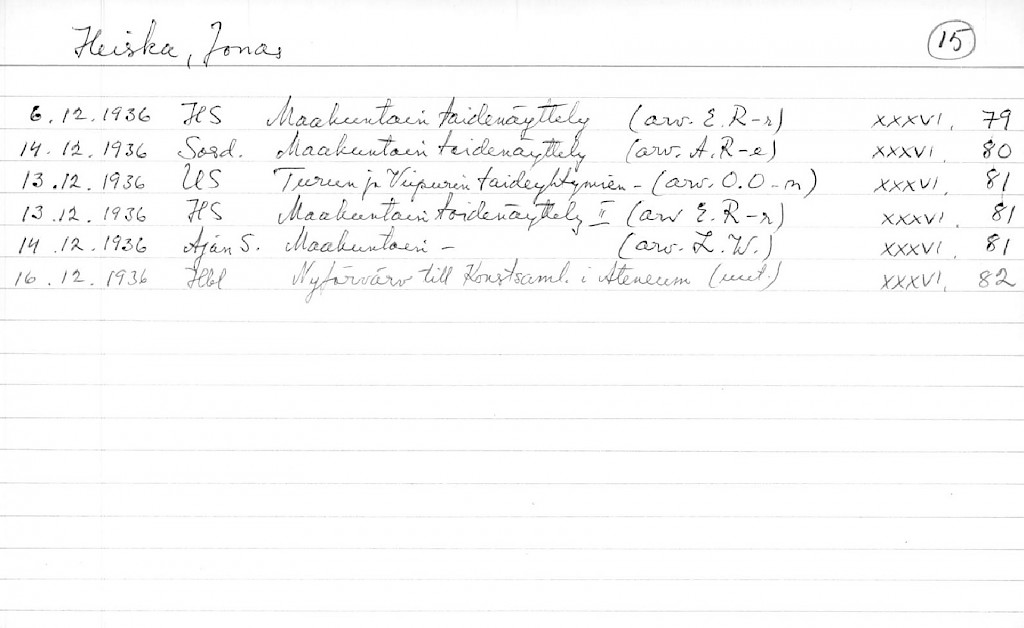 Heiska, Jonas 15
6.12.1936 HS Maakuntain taidenäyttely (arv. E.R-r) XXXVI, 79
14.12.1936 Sosd. Maakuntain taidenäyttely (arv. A.R-e) XXXVI, 80
13.12.1936 US Turun ja Viipurin taideyhtymien - (arv. O.O-n) XXXVI, 81
13.12.1936 HS Maakuntain taidenäyttely II (arv E.R-r) XXXVI, 81
14.12.1936 Ajan S. Maakuntain - (arv. L.W.) XXXVI, 81
16.12.1936 Hbl Nyförvärv till Konstsaml. i Ateneum (uut.) XXXVI, 82